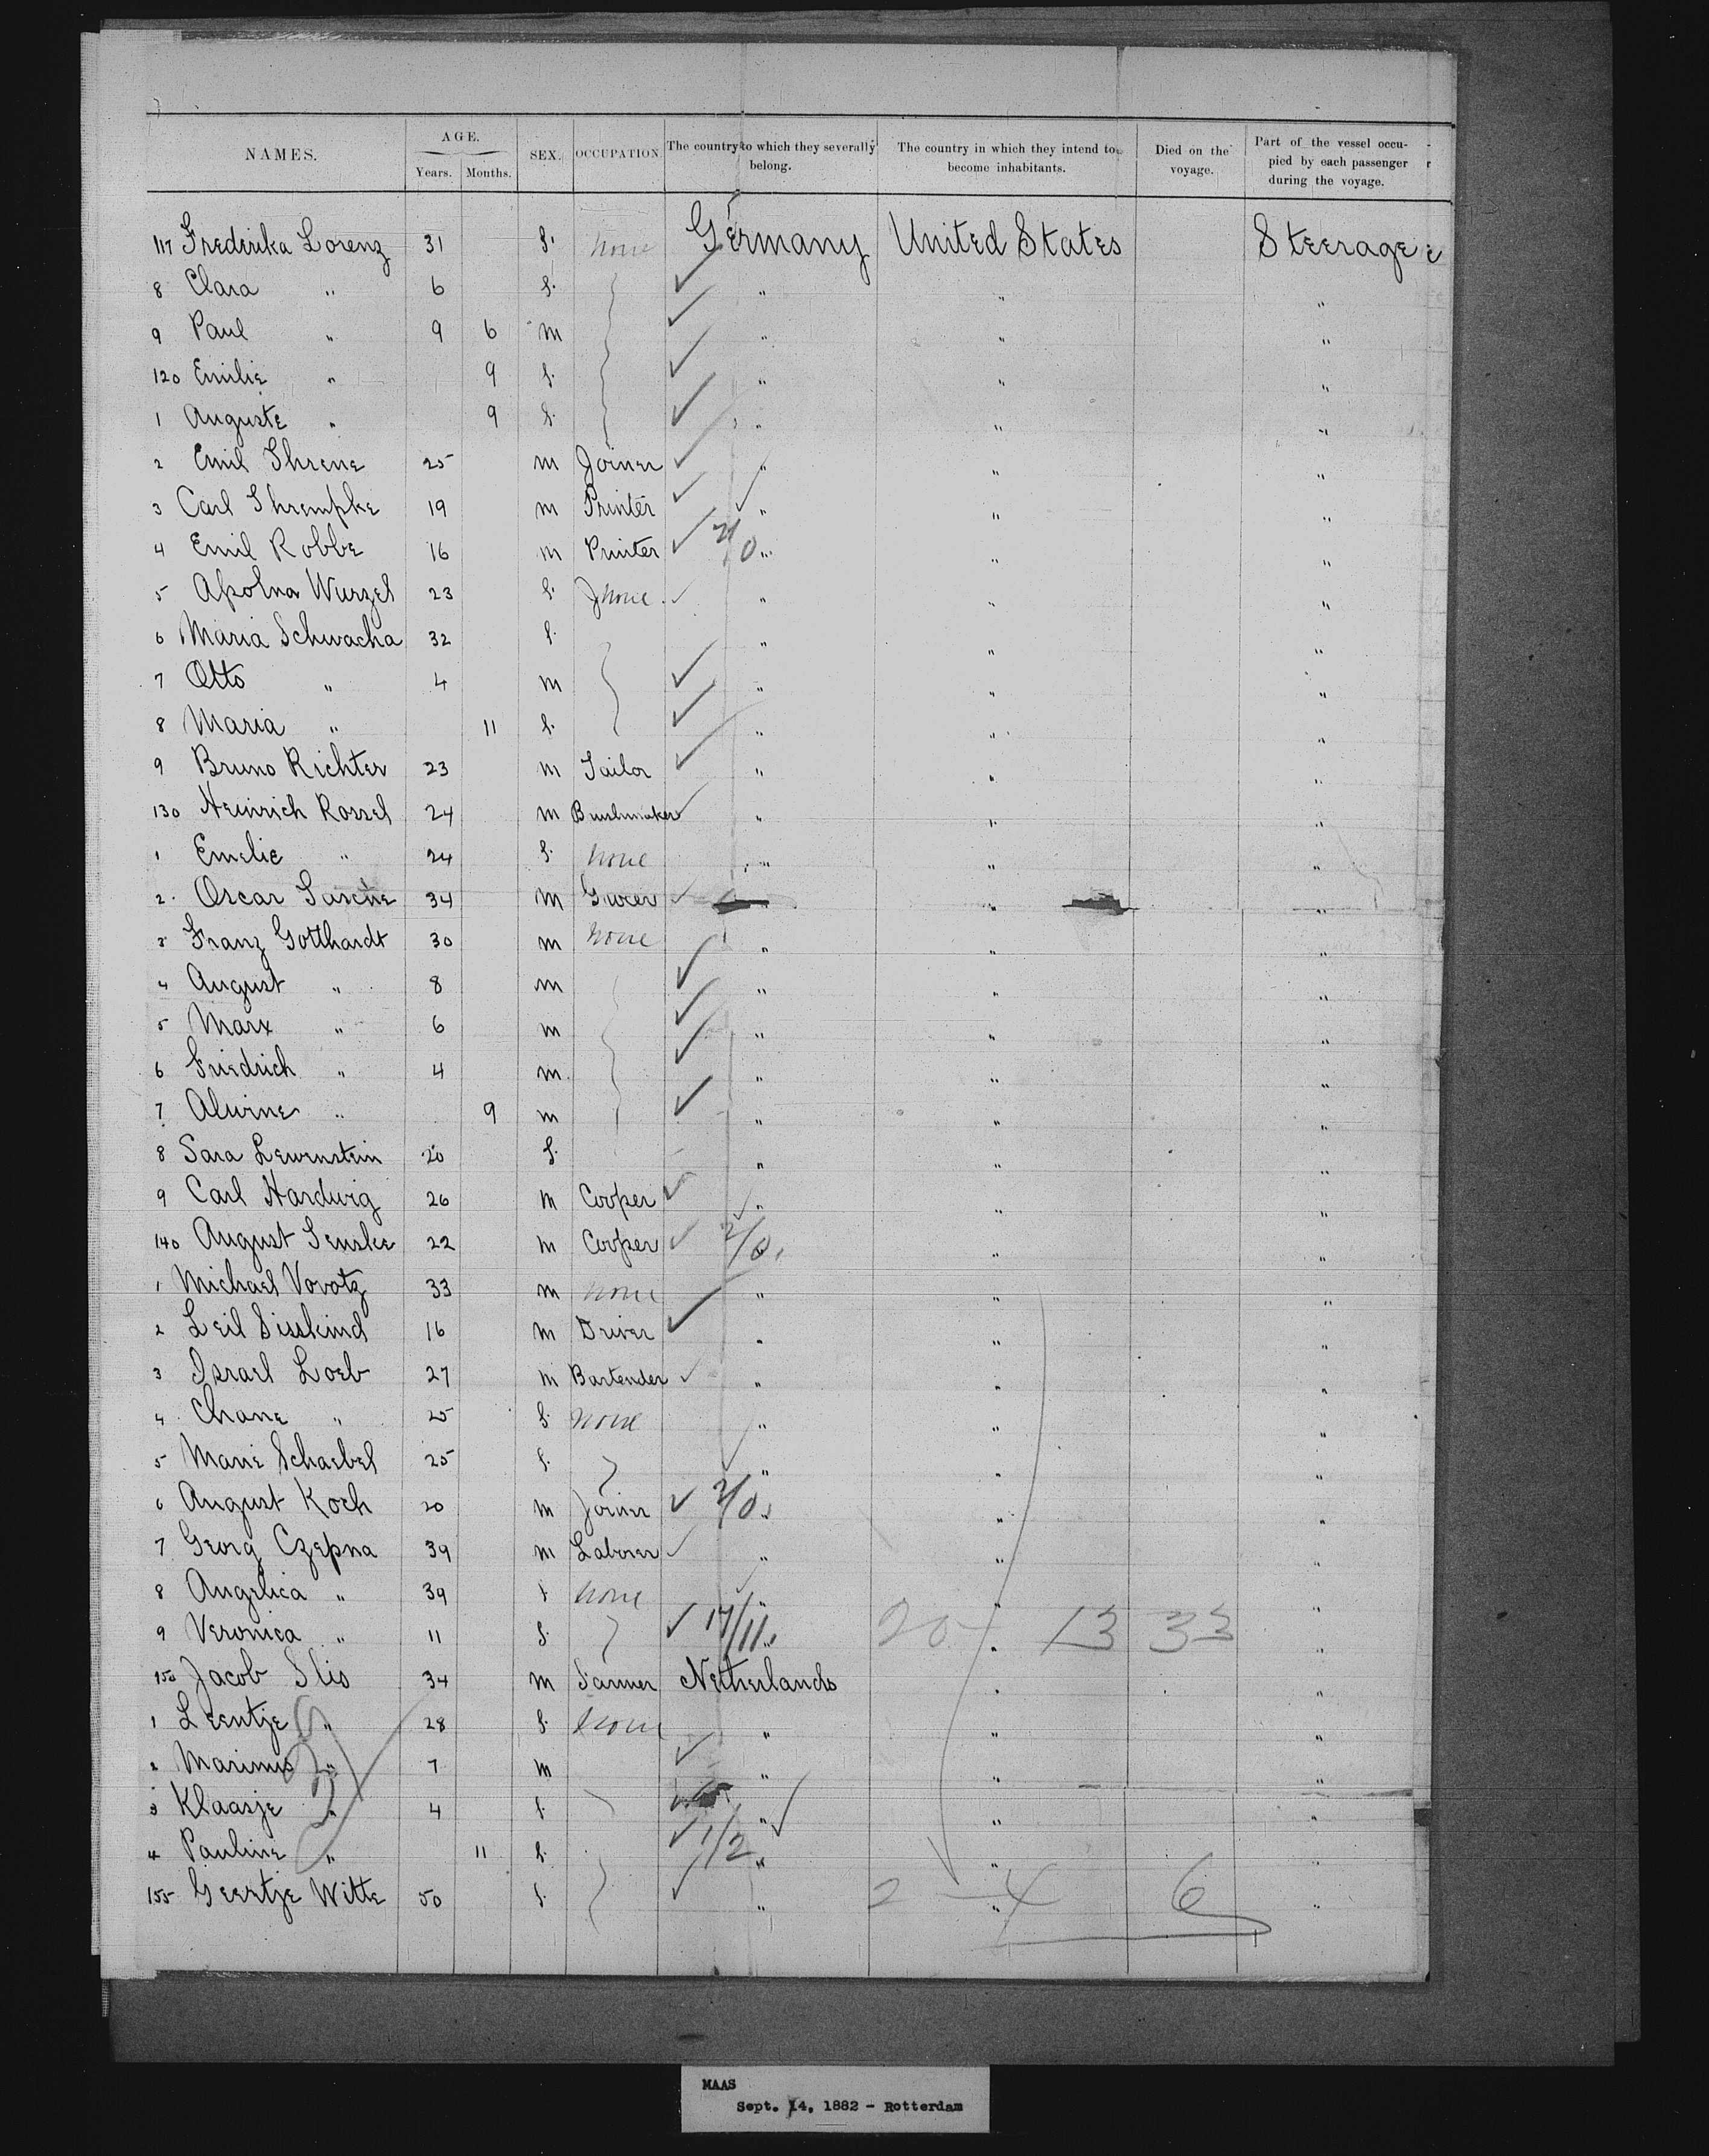 NAMES. AGE. Years. Months. SEX. OCCUPATION The country to which they severally belong. The country in which they intend to become inhabitants. Died on the voyage. Part of the vessel occupied by each passenger during the voyage.
117 Frederika Lorenz 31 f. none Germany United States Steerage
8 Clara " 6 f. " " "
9 Paul " 9 6 m " " "
120 Emilie " 9 f. " " "
1 Auguste " 9 f. " " "
2 Emil Threne 25 m Joiner " " "
3 Carl Thrempke 19 m Printer " " "
4 Emil Robbe 16 m Printer 2/0 " " "
5 Apolna Wurzel 23 f. none " " "
6 Maria Schwacha 32 f. " " "
7 Otto " 4 m " " "
8 Maria " 11 f. " " "
9 Bruno Richter 23 m Tailor " " "
130 Heinrich Rossel 24 m Brushmaker " " "
1 Emelie " 24 f. none " " "
2 Oscar 34 m " " "
3 Franz Gotthardt 30 m none " " "
4 August " 8 m " " "
5 Marx " 6 m " " "
6 Friedrich " 4 m " " "
7 Alwine " 9 m " " "
8 Sara Lewenstein 20 f. " " "
9 Carl Hardwig 26 m Cooper " " "
140 August Senske 22 m Cooper 2/0 " " "
1 Michael Vovotz 33 m none " " "
2 Leil Sisskind 16 m Driver " " "
3 Israel Loeb 27 m Bartender " " "
4 Chane " 25 f. none " " "
5 Marie Schaebel 25 f. " " "
6 August Koch 20 m Joiner 2/0 " " "
7 Georg Czepna 39 m Laborer " " "
8 Angelica " 39 f. none " " "
9 Veronica " 11 f. 17/11 " 20 " 13 33 "
150 Jacob Slis 34 m Farmer Netherlands " "
1 Leentje " 28 f. none " " "
2 Marinus " 7 m " " "
3 Klaasje " 4 f. " " "
4 Pauline " 11 f. 1/2 " " "
155 Geertje Witte 50 f. " 2 " 4 6 "
MAAS
Sept. 14, 1882 - Rotterdam